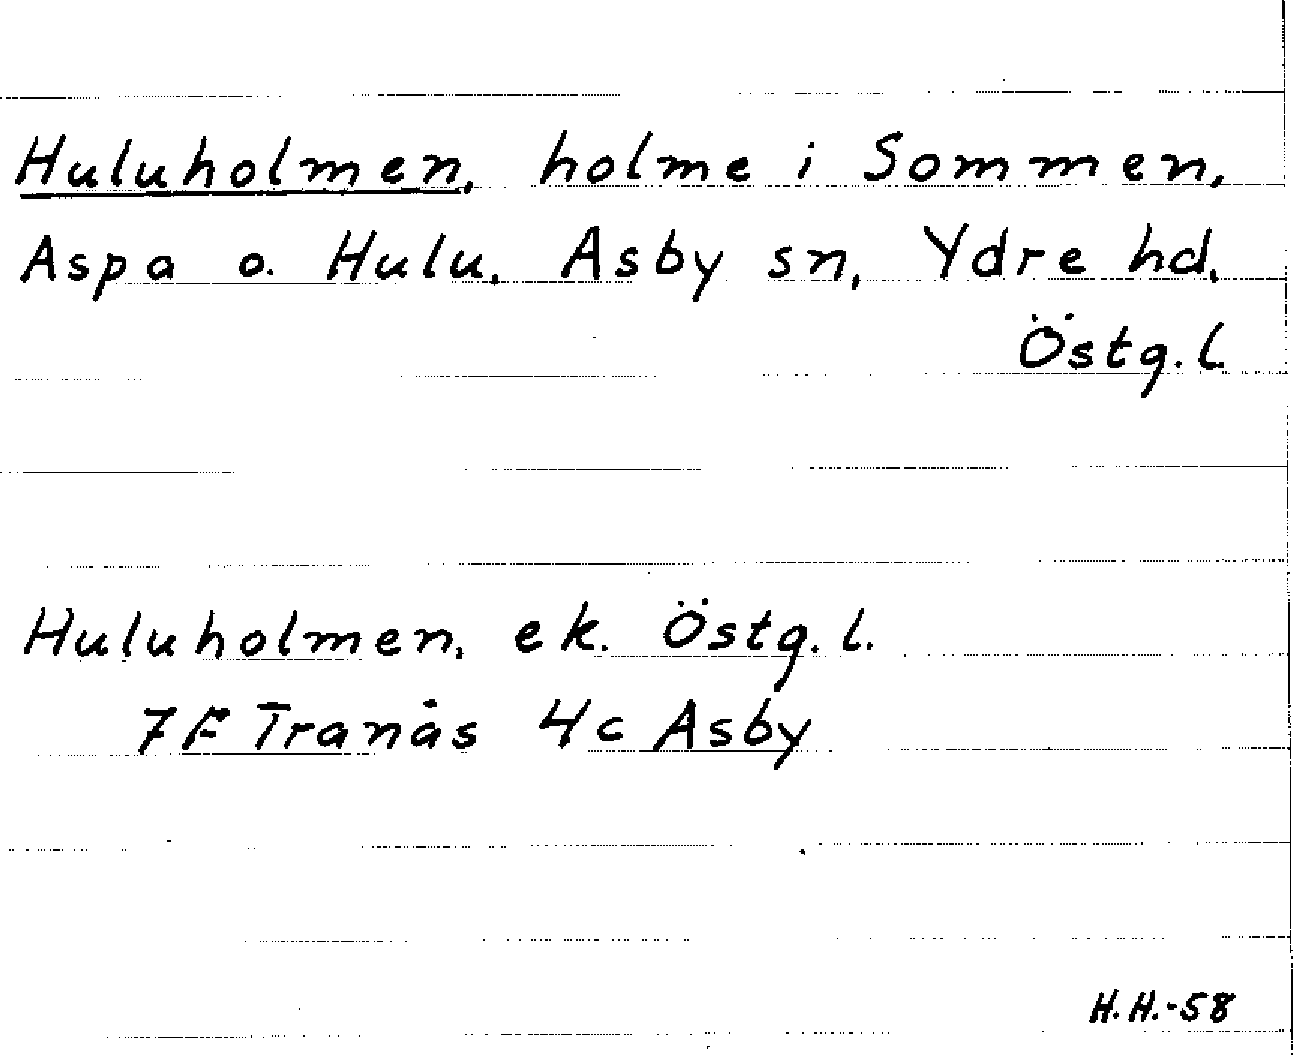 Huluholmen, holme i Sommen,
Aspa o. Hulu, Asby sn, Ydre hd,
Östg. l.
Huluholmen, ek. Östg. l.
7F Tranås 4c Asby
H.H.-58